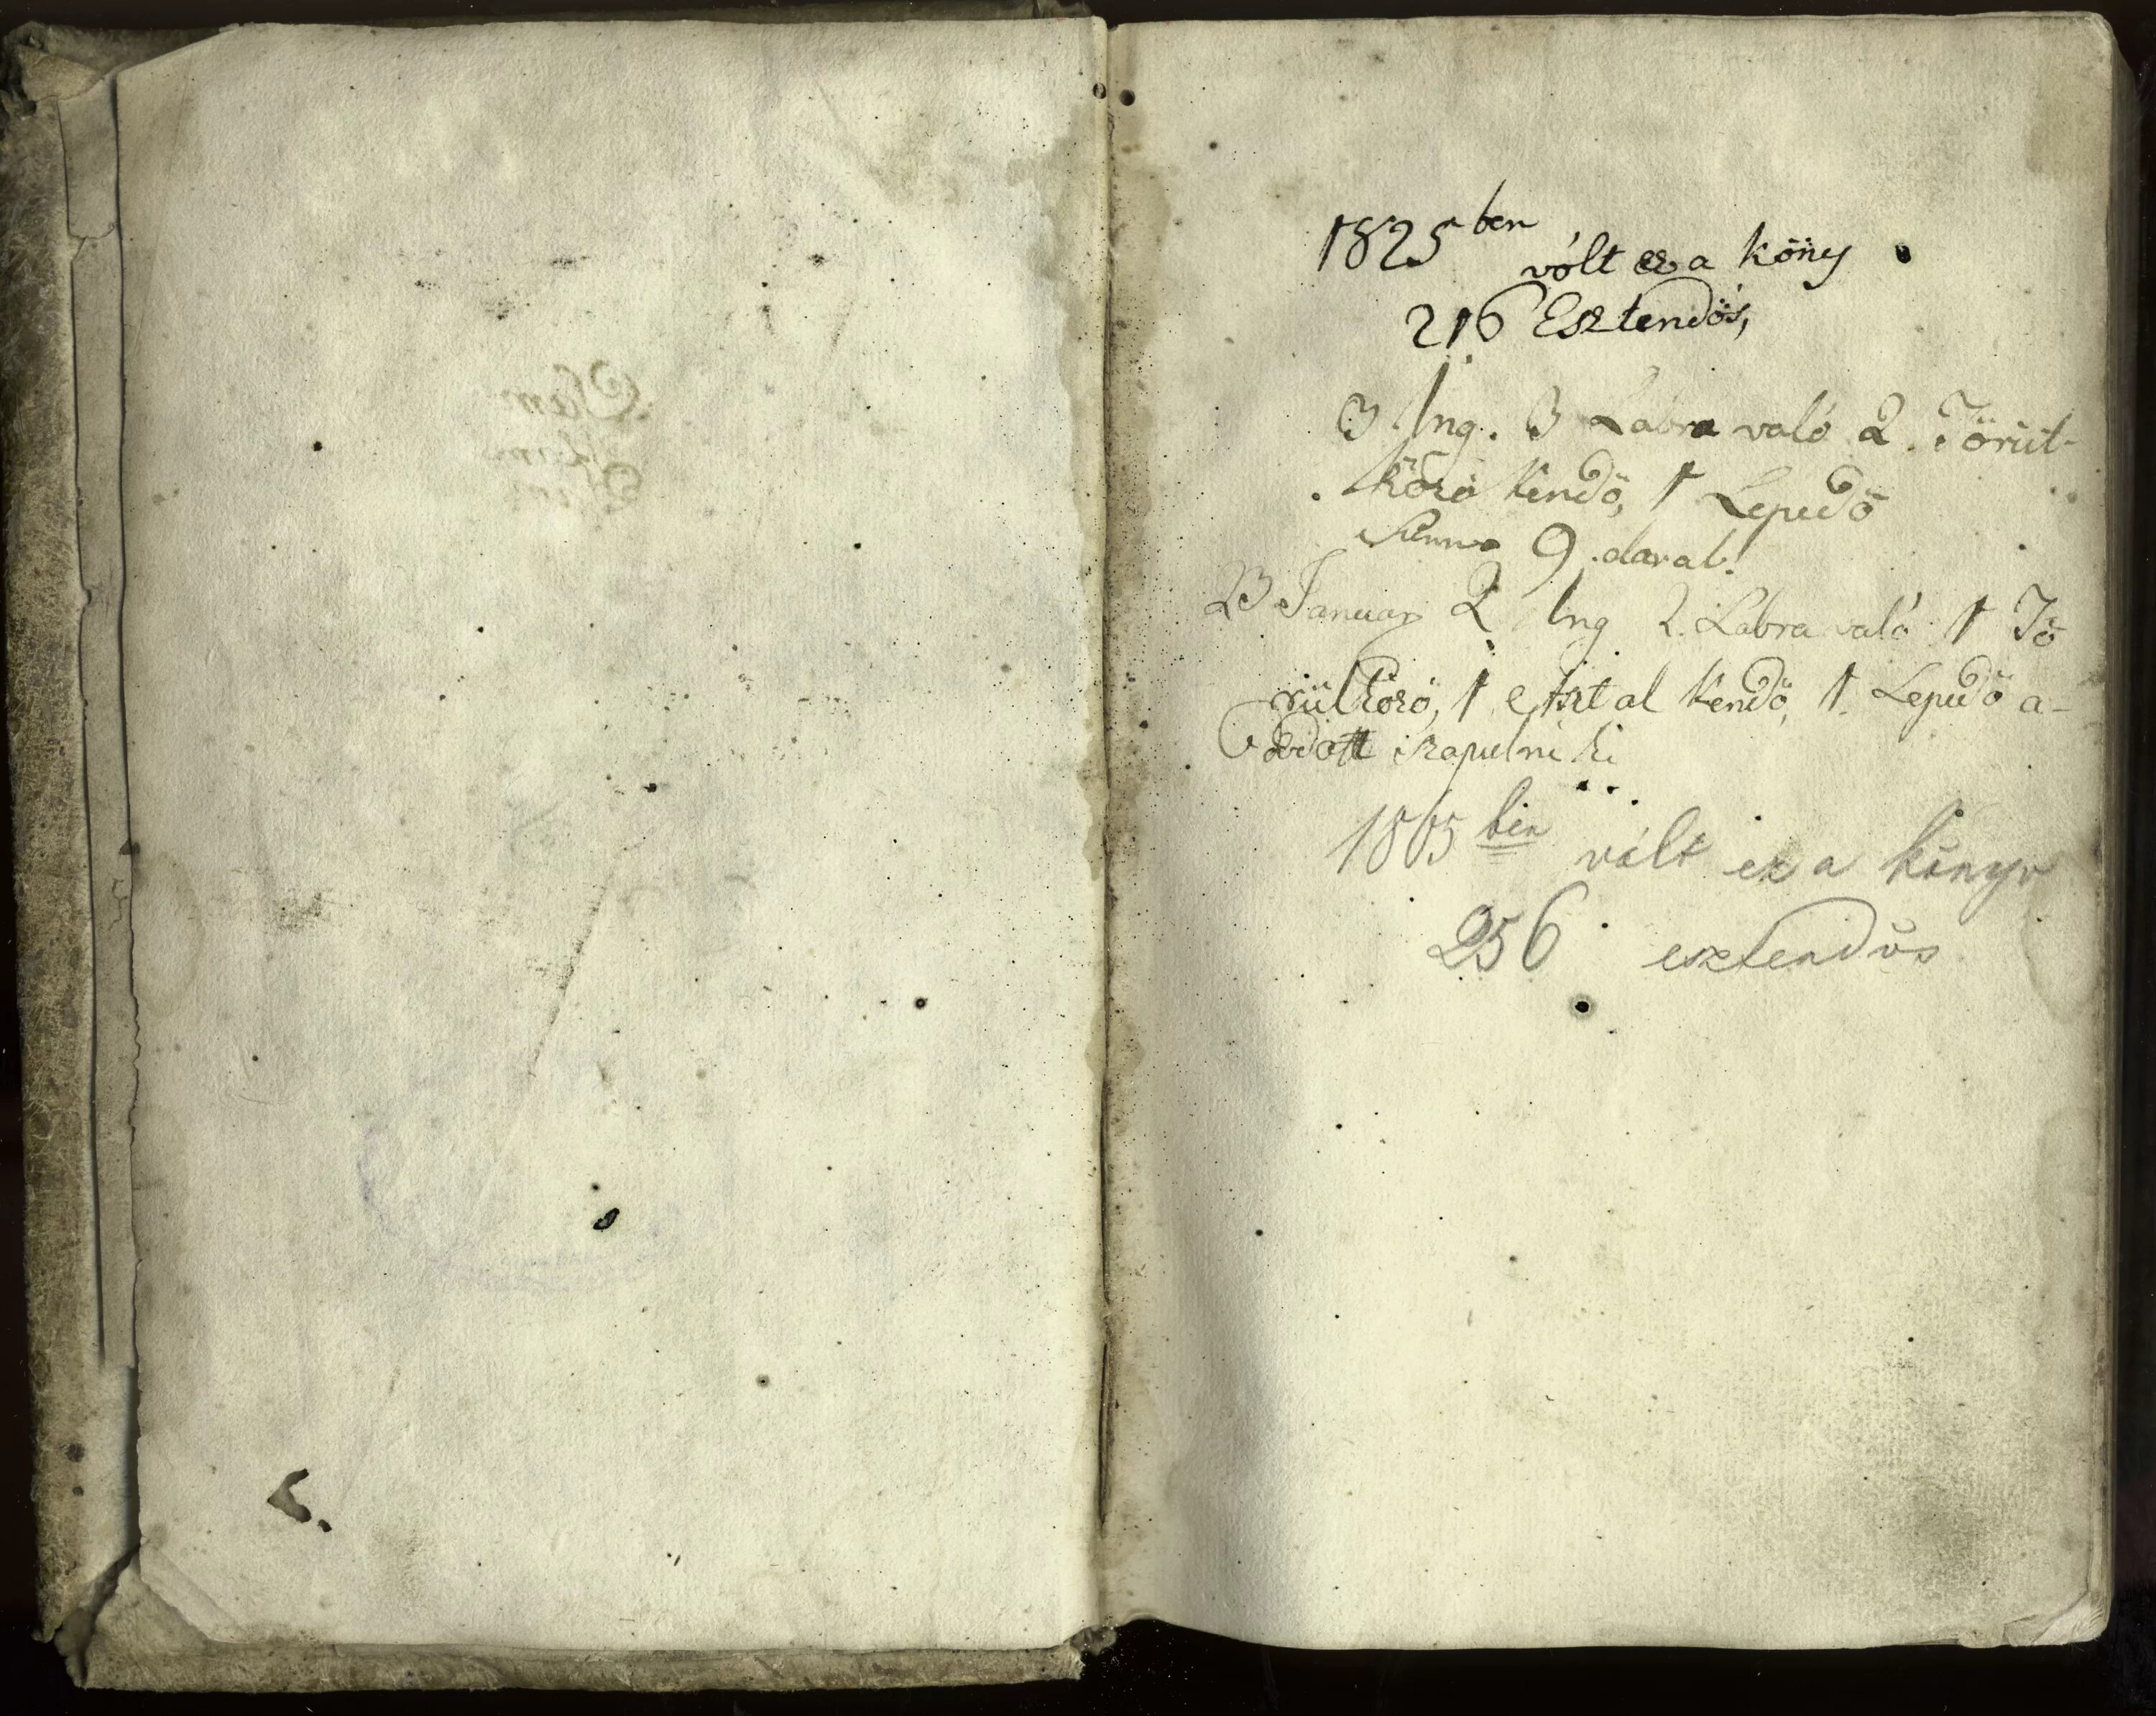 1825 ben
vólt ez a köny
216 Esztendős,
3 Ing. 3 Labra való 2. Törül-
köző Kendö, 1 Lepedö
Summa 9. darab.
23 Januar 2 Ing 2. Labra való 1 Tö
rülköző, 1 asztal Kendö, 1. Lepedö a-
dott szapulni ki
1865 ben vólt ez a könyv
256 esztendös